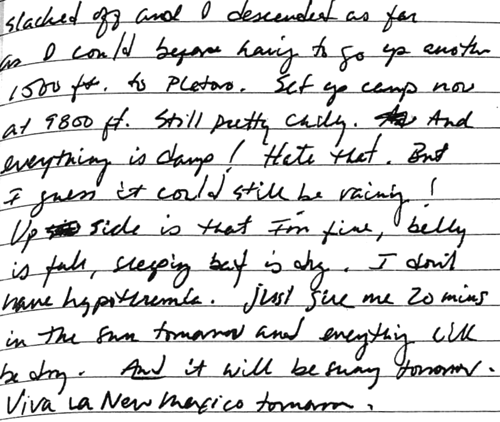 slacked off and I descended as far
as I could before having to go up another
1500 ft. to Plateau. Set up camp now
at 9800 ft. Still pretty chilly. And
everything is damp! Hate that. But
I guess it could still be raining!
Up side is that I'm fine, belly
is full, sleeping bag is dry. I don't
have hypothermia. Just give me 20 mins
in the sun tomorrow and everything will
be dry. And it will be sunny tomorrow.
Viva La New Mexico tomorrow.